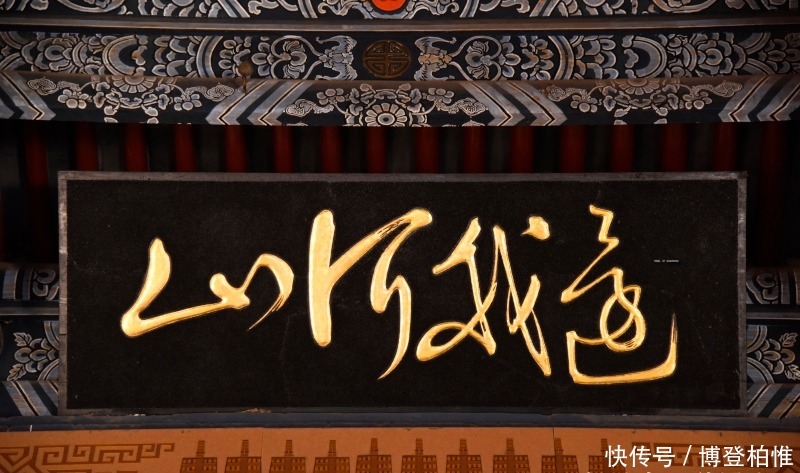 还我河山
快传号／博登柏惟